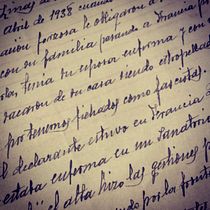 Abril de 1938 cuando
forcosa le obligaron a
con su familia pasando a Francia
tenia su esposa enferma, y con
sacaron de su casa siendo atropellados
por temores fichados como fascistas.
El declarante estuvo en Francia
estaba enferma en un Sanatorio
el alta hizo las gestiones
por la